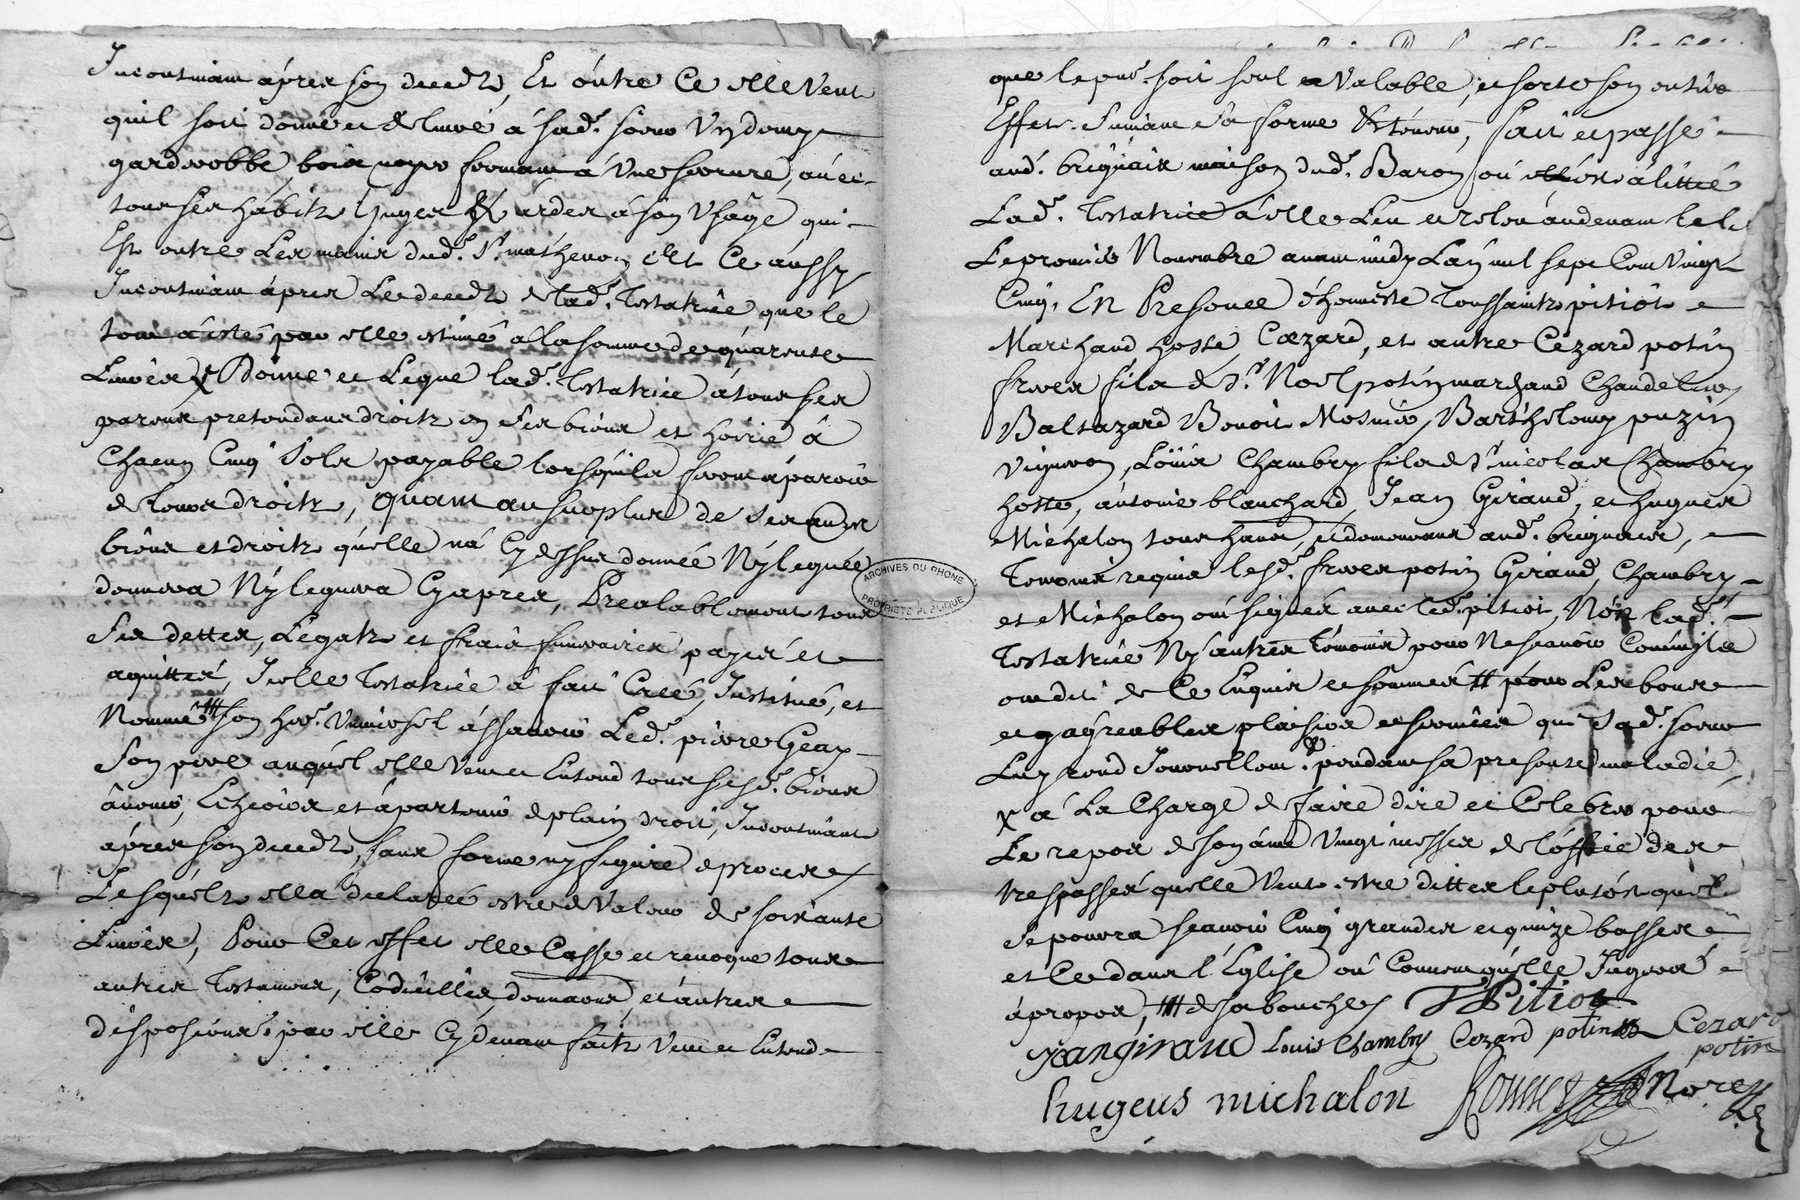 Incontinant ápres son decedz, Et óutre Ce elle Veut
quil soit donné et délivré á sad.^e sœur Un demy
gardrobbe, bois noyer fermant á Une serrure, áuec
tous ses hábitz linges & ardes á son Usâge qui
Est entre Les mains dud.^t S.^r mathevon, Et Ce aussy
Incontinant áprés Le decedz de lad.^e Testatrice que le
tout a ésté par elle estimé á la somme de quárente
Livres Donne et Legue lad.^e Testatrice á tous ses
parens pretendans droitz en ses biens et hoirie á
Chacun Cinq Sols payable lorsquils feront áparoir
de leurs droitz, quant au surplus de ses autres
biens et droitz quelle ná Cy dessus donnée Ny leguée
donnera Ny leguera Cyapres, Prealablement tous
Ses dettes, Légatz et frais funeraires payés et
aquittés, Icelle Testatrice á fait Créé, Institué, et
Nommé # son her.^r Universel ássavoir Led.^t pierre Geay
Son pere auquel elle Veut et Entend tous sesd.^s biens
âvenir, Echeoir et ápartenir de plain droit, Incontinant
áprés son decedz, sans forme ny figure de proces
Lesquels ella declarée estre de Valeur de soixante
Livres, Pour Cet effet elle Casse et revoque tous
autres Testamens, Codicilles, donnaons, et áutres
dispositions par elle Cydevant faitz Veut et Entend
que le pnt soit seul & Valable, et sorte son entier
Effet. Suivant sa forme & téneur, fait et passé
aud.^t briquais maison dud.^t Baron oú est álittée
Lad.^e Testatrice á elle Leu et releu áudevant le
Le premier Novembre avant midy Lan mil sept Cent Vingt
Cinq, En Presence d'honneste Toussaintz pitiot
Marchand hoste, Cæzard, et autre Cezard potin
freres fils de S.^r Noel potin marchand Chandelier
Baltazard Benoit Mosnier, Barthelemy puzin
Vigneron, Loüis Chambry fils de S.^r nicolas Chambry
hoste, ántoine blanchard, Jean Giraud, et hugues
Michalon tous hans, et demeurans aud.^t brignais,
Temoins requis lesd.^s freres potin Giraud, Chambry
et Michalon ont signés avec led.^t pitiot, Non lad.^e
Testatrice Ny autres témoins pour Nescavoir Comm'ils
ont dit de Ce Enquis et sommés # pour Les bons
et agréables plaisirs et services que Sad.^e sœur
Luy rend Journellem.^t pendant sa presente maladie
x á La Charge de faire dire et Celebrer pour
Le repos de son áme Vingt messes de lóffice des
trespassés quelle Veut estre dittes le plutost quil
Se pourra scavoir Cinq grandes et quinze basses
et Ce dans l'Eglise oú Couvent quelle Jugera
ápropos, # de sa bouche T Pitiot
Jean giraud Louis Chambry Cezard potin Cezard
potin
hugeus michalon
ARCHIVES DU RHONE
PROPRIÉTÉ PUBLIQUE